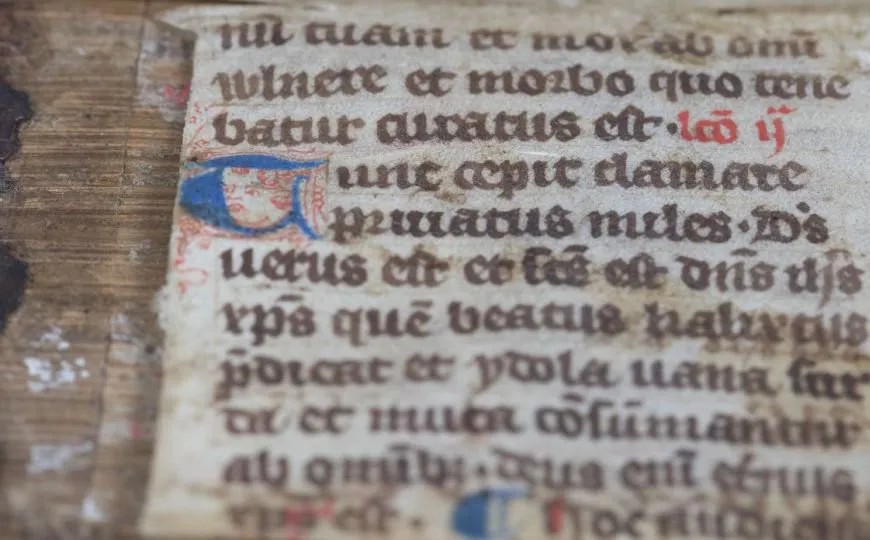 nū tuam et mox ab omī
wlnere et morbo quo tene
batur curatus est · lcō ij
Tunc cepit clamare
priuatus miles · D's
uerus est et scs̄ est dn̄s ih̄s
xp̄s quē beatus kalixtus
p̄dicat et ydola uana sur
da et muta cōsumantur
ab omīb; · deus enī et̄nus
est ·